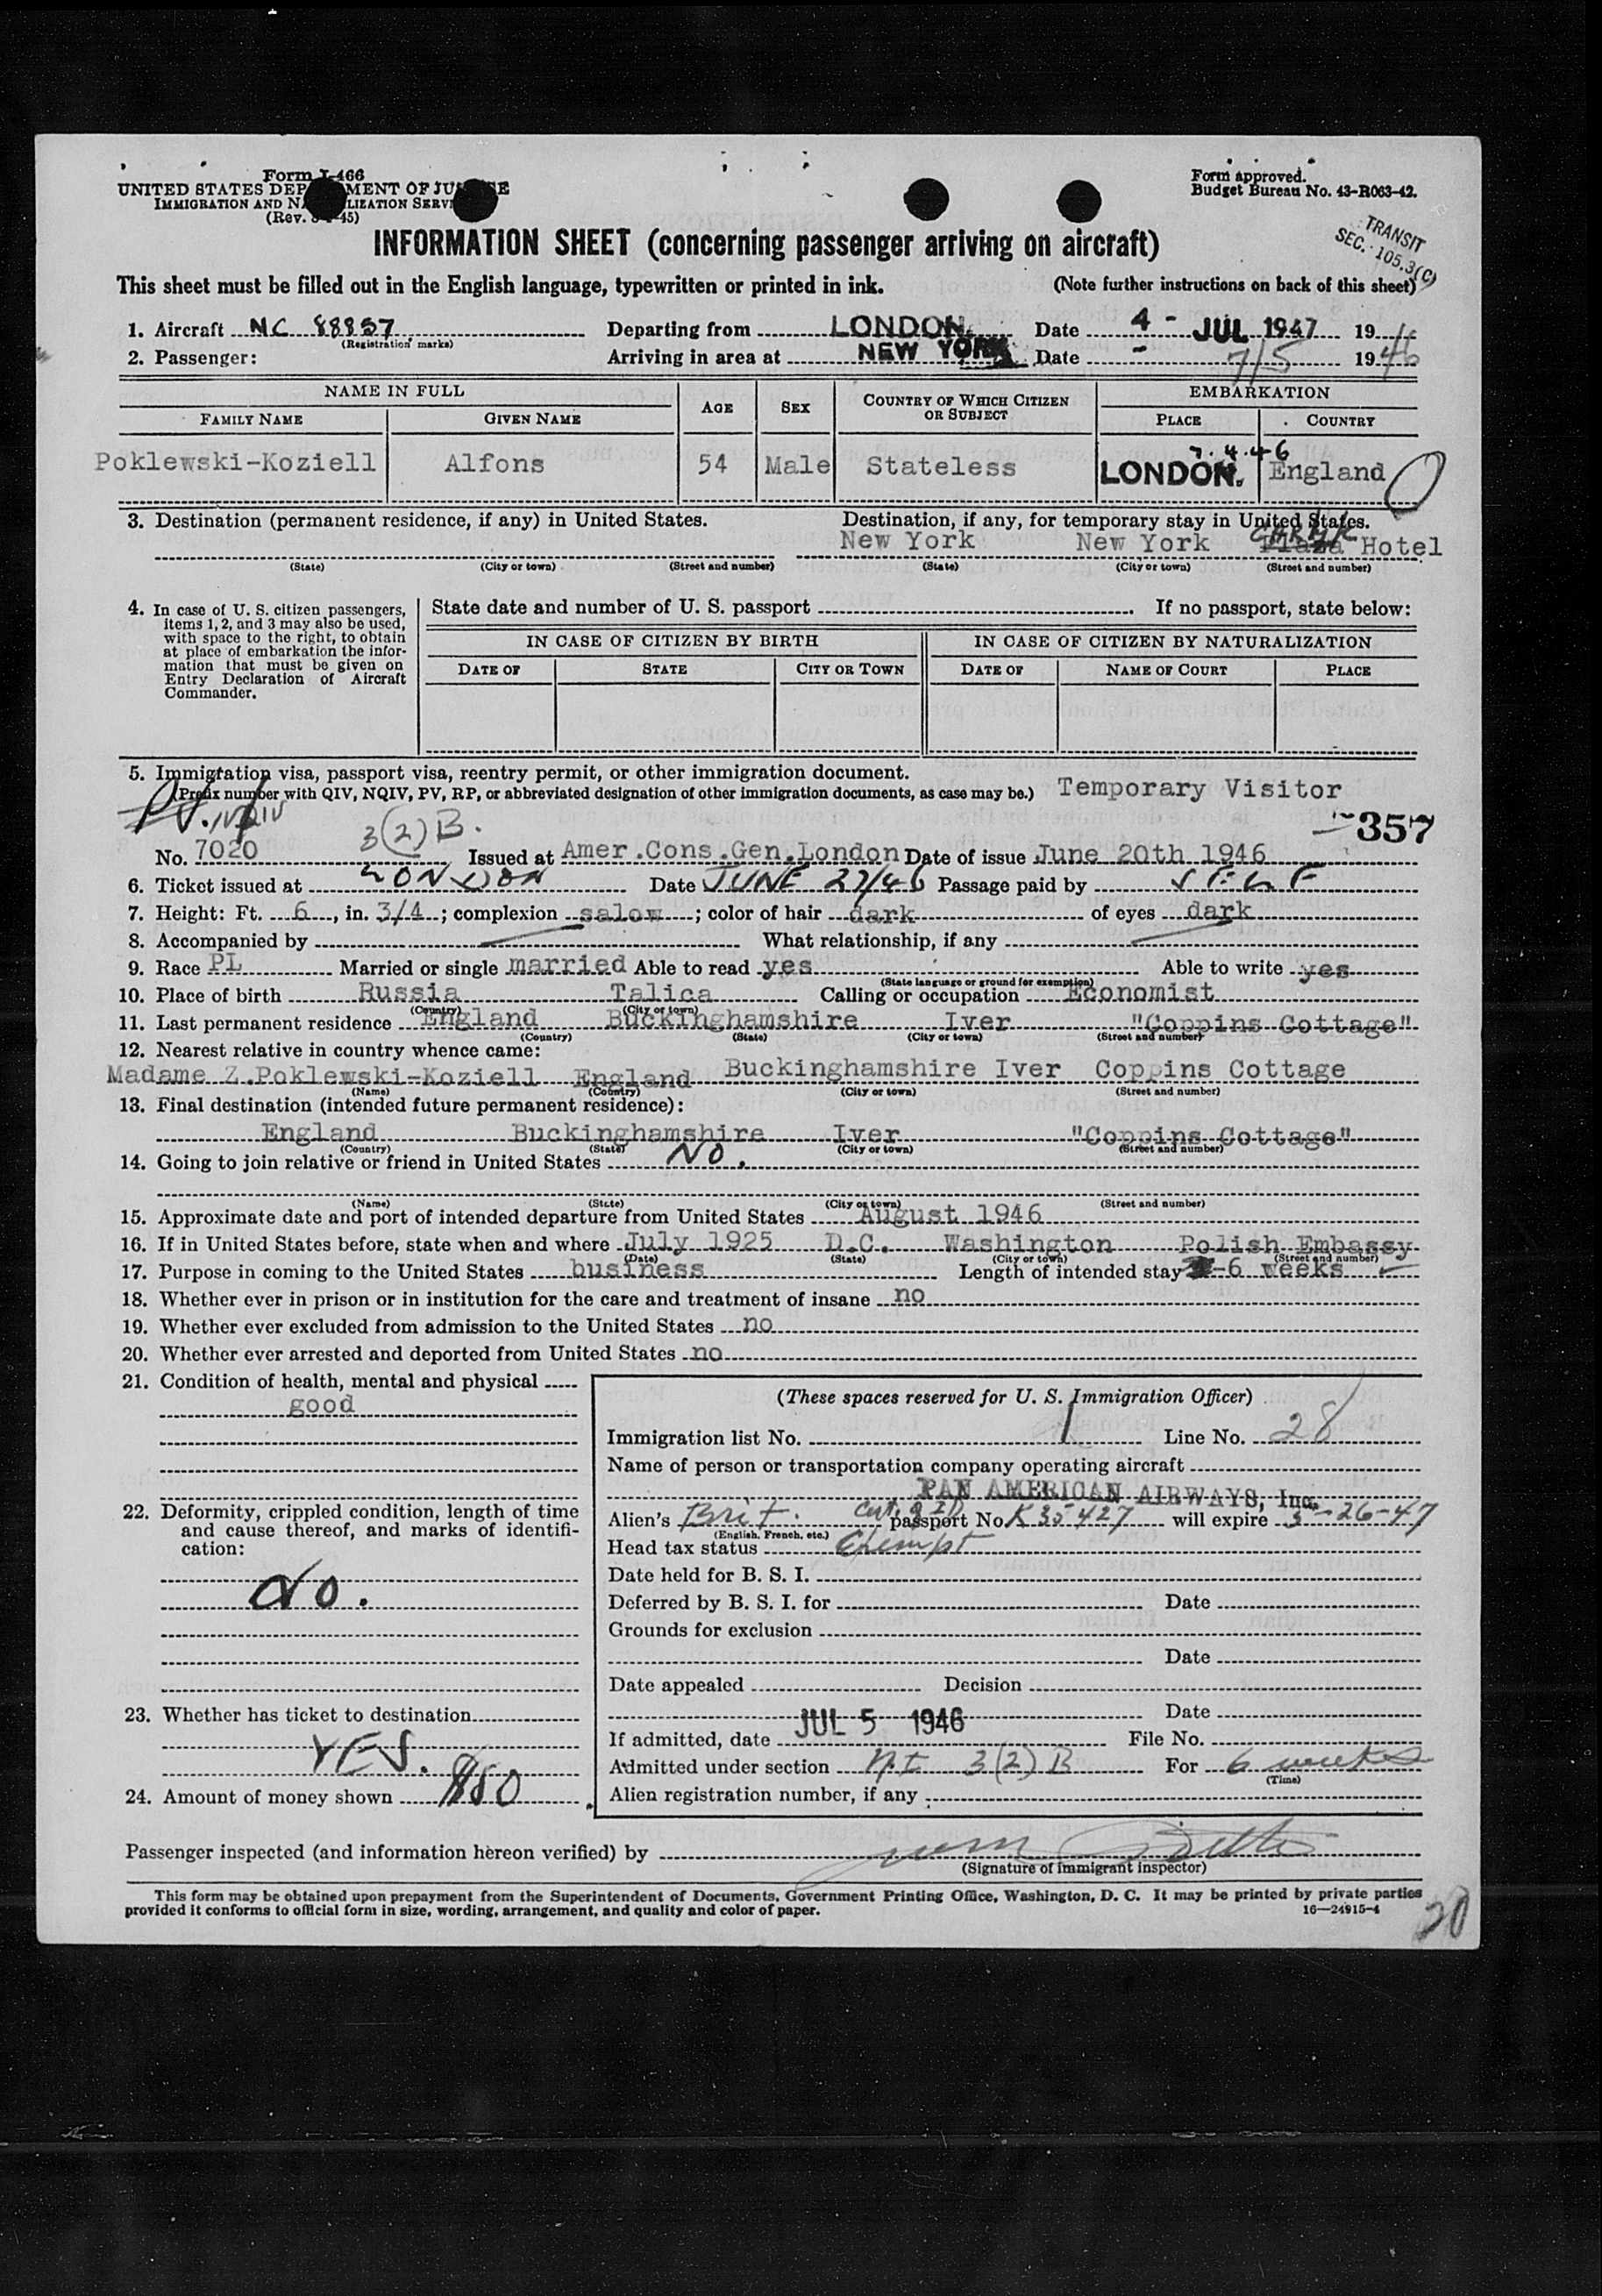 Form I-466
UNITED STATES DEPARTMENT OF JUSTICE
IMMIGRATION AND NATURALIZATION SERVICE
(Rev. 45)
Form approved.
Budget Bureau No. 43-R063-42.
TRANSIT
SEC. 105.3(C)
INFORMATION SHEET (concerning passenger arriving on aircraft)
This sheet must be filled out in the English language, typewritten or printed in ink. (Note further instructions on back of this sheet)
1. Aircraft NC 88857 Departing from LONDON. Date 4 - JUL 1947 1946
(Registration marks)
2. Passenger: Arriving in area at NEW YORK Date - 7/5 1946
NAME IN FULL AGE SEX COUNTRY OF WHICH CITIZEN OR SUBJECT EMBARKATION
FAMILY NAME GIVEN NAME PLACE COUNTRY
7.4.46
Poklewski-Koziell Alfons 54 Male Stateless LONDON. England
3. Destination (permanent residence, if any) in United States. Destination, if any, for temporary stay in United States.
New York New York Plaza Hotel
(State) (City or town) (Street and number) (State) (City or town) (Street and number)
4. In case of U. S. citizen passengers, items 1, 2, and 3 may also be used, with space to the right, to obtain at place of embarkation the information that must be given on Entry Declaration of Aircraft Commander.
State date and number of U. S. passport If no passport, state below:
IN CASE OF CITIZEN BY BIRTH IN CASE OF CITIZEN BY NATURALIZATION
DATE OF STATE CITY OR TOWN DATE OF NAME OF COURT PLACE
5. Immigration visa, passport visa, reentry permit, or other immigration document.
(Prefix number with QIV, NQIV, PV, RP, or abbreviated designation of other immigration documents, as case may be.) Temporary Visitor
3(2)B. 357
No. 7020 Issued at Amer.Cons.Gen.London Date of issue June 20th 1946
6. Ticket issued at LONDON Date JUNE 27/46 Passage paid by SELF
7. Height: Ft. 6, in. 3/4; complexion salow; color of hair dark of eyes dark
8. Accompanied by What relationship, if any
9. Race PL Married or single married Able to read yes Able to write yes
(State language or ground for exemption)
10. Place of birth Russia Talica Calling or occupation Economist
(Country) (City or town)
11. Last permanent residence England Buckinghamshire Iver "Coppins Cottage"
(Country) (State) (City or town) (Street and number)
12. Nearest relative in country whence came:
Madame Z.Poklewski-Koziell England Buckinghamshire Iver Coppins Cottage
(Name) (Country) (City or town) (Street and number)
13. Final destination (intended future permanent residence):
England Buckinghamshire Iver "Coppins Cottage"
(Country) (State) (City or town) (Street and number)
14. Going to join relative or friend in United States NO.
(Name) (State) (City or town) (Street and number)
15. Approximate date and port of intended departure from United States August 1946
16. If in United States before, state when and where July 1925 D.C. Washington Polish Embassy
(Date) (State) (City or town) (Street and number)
17. Purpose in coming to the United States business Length of intended stay -6 weeks
18. Whether ever in prison or in institution for the care and treatment of insane no
19. Whether ever excluded from admission to the United States no
20. Whether ever arrested and deported from United States no
21. Condition of health, mental and physical
good
22. Deformity, crippled condition, length of time and cause thereof, and marks of identification:
No.
23. Whether has ticket to destination
YES.
24. Amount of money shown
(These spaces reserved for U. S. Immigration Officer)
Immigration list No. 1 Line No. 28
Name of person or transportation company operating aircraft
PAN AMERICAN AIRWAYS, Inc.
Alien's Brit. Cert. of ID passport No K 35427 will expire 3-26-47
(English, French, etc.)
Head tax status Exempt
Date held for B. S. I.
Deferred by B. S. I. for Date
Grounds for exclusion
Date
Date appealed Decision
Date
If admitted, date JUL 5 1946 File No.
Admitted under section 3(2)B For 6 weeks
(Time)
Alien registration number, if any
Passenger inspected (and information hereon verified) by
(Signature of immigrant inspector)
This form may be obtained upon prepayment from the Superintendent of Documents, Government Printing Office, Washington, D. C. It may be printed by private parties
provided it conforms to official form in size, wording, arrangement, and quality and color of paper. 16—24915-4
20